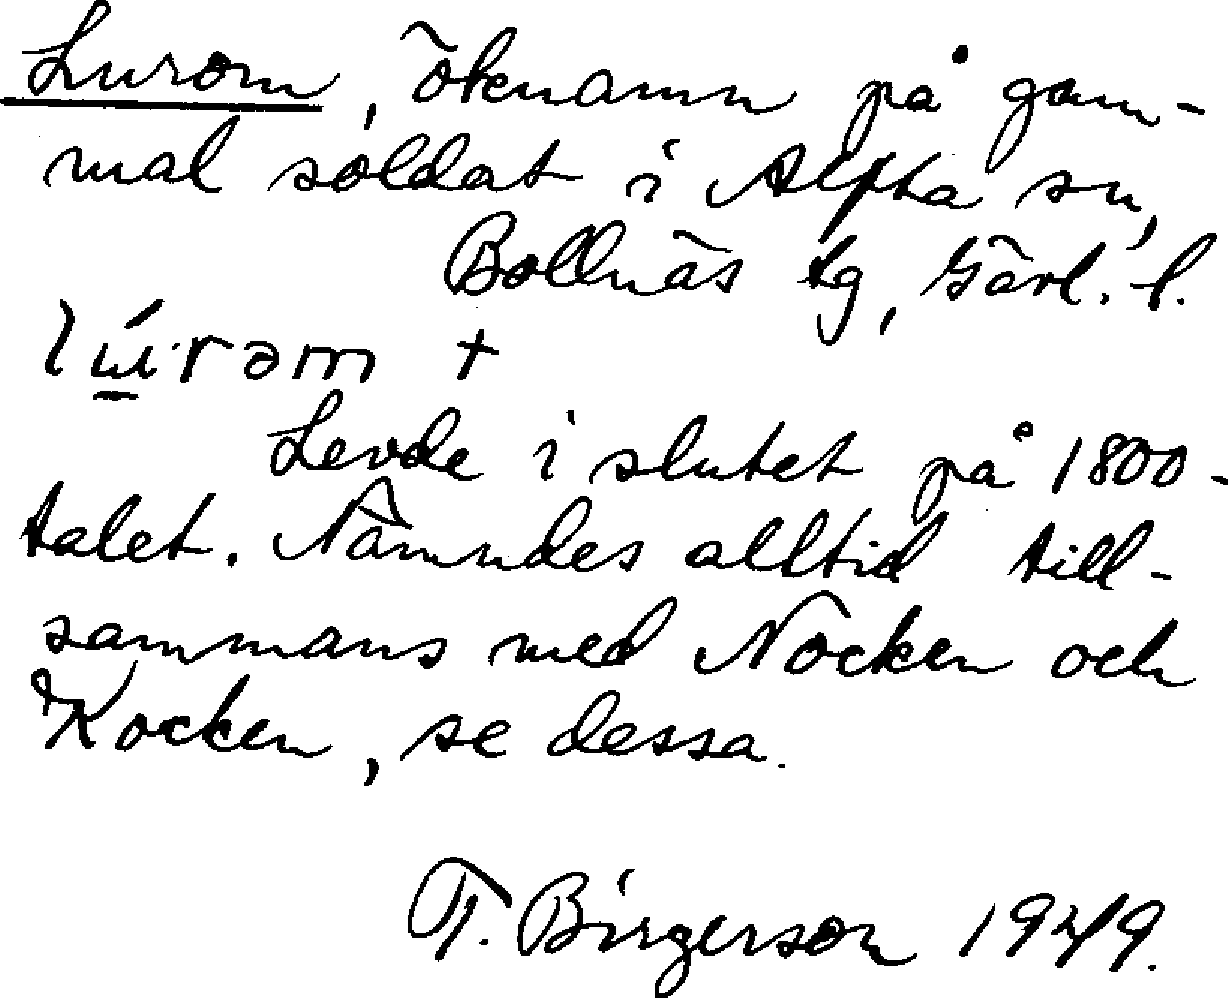 Lurom, öknamn på gam-
mal soldat i Alfta sn,
Bollnäs tg, Gävl. l.
lú̱·rəm +
Levde i slutet på 1800-
talet. Nämndes alltid till-
sammans med Nocken och
Kocken, se dessa.
T. Birgerson 1949.